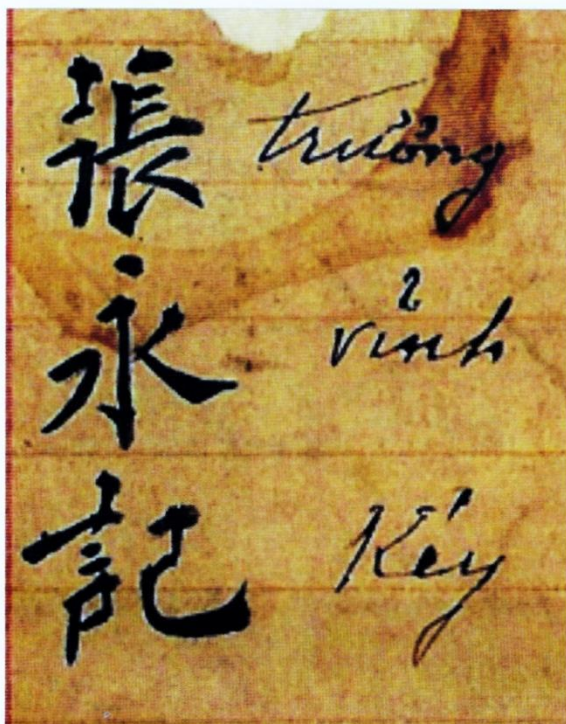 張 trương
永 vỉnh
記 Ký